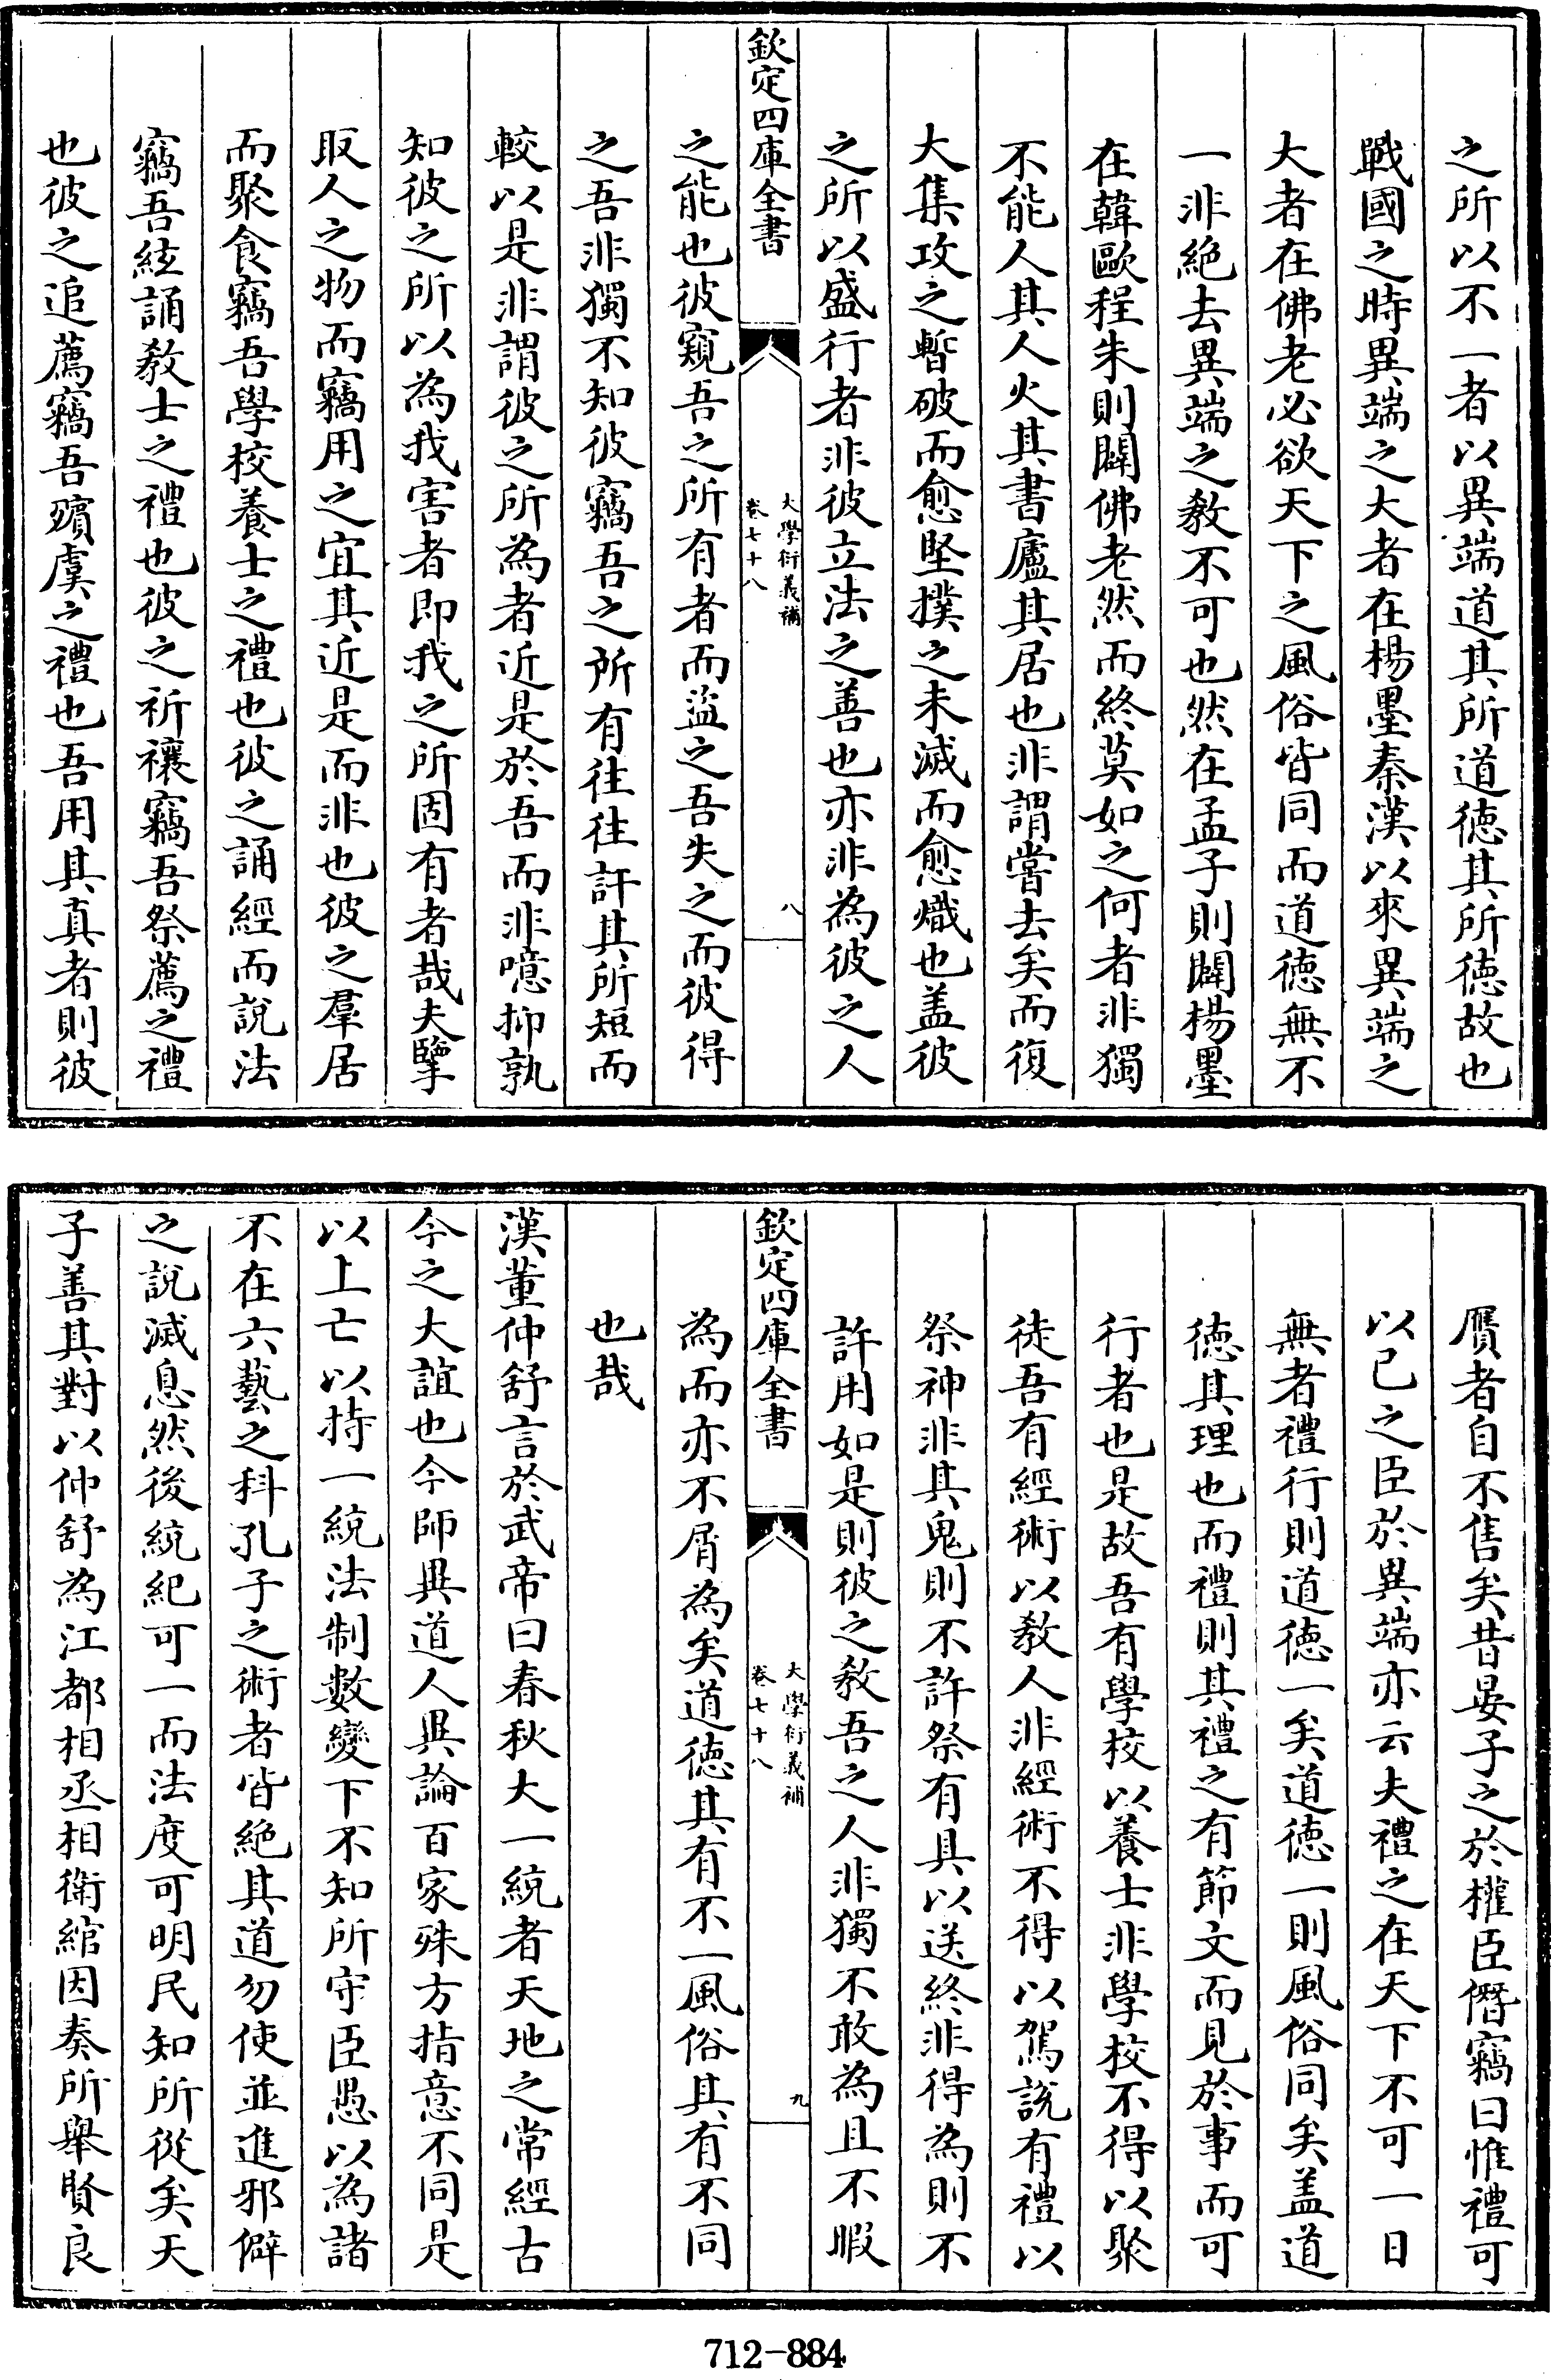 之所以不一者以異端道其所道徳其所徳故也
戰國之時異端之大者在楊墨秦漢以來異端之
大者在佛老必欲天下之風俗皆同而道徳無不
一非絶去異端之教不可也然在孟子則闢楊墨
在韓歐程朱則闢佛老然而終莫如之何者非獨
不能人其人火其書廬其居也非謂嘗去矣而復
大集攻之暫破而愈堅撲之未滅而愈熾也盖彼
之所以盛行者非彼立法之善也亦非為彼之人
欽定四庫全書
大學衍義補
卷七十八
八
之能也彼窺吾之所有者而盜之吾失之而彼得
之吾非獨不知彼竊吾之所有往往訐其所短而
較以是非謂彼之所為者近是於吾而非噫抑孰
知彼之所以為我害者即我之所固有者哉夫擥
取人之物而竊用之宜其近是而非也彼之羣居
而聚食竊吾學校養士之禮也彼之誦經而說法
竊吾絃誦教士之禮也彼之祈禳竊吾祭薦之禮
也彼之追薦竊吾殯虞之禮也吾用其真者則彼
贋者自不售矣昔晏子之於權臣僭竊曰惟禮可
以已之臣於異端亦云夫禮之在天下不可一日
無者禮行則道徳一矣道徳一則風俗同矣盖道
徳其理也而禮則其禮之有節文而見於事而可
行者也是故吾有學校以養士非學校不得以聚
徒吾有經術以教人非經術不得以駕說有禮以
祭神非其鬼則不許祭有具以送終非得為則不
許用如是則彼之教吾之人非獨不敢為且不暇
欽定四庫全書
大學衍義補
卷七十八
九
為而亦不屑為矣道徳其有不一風俗其有不同
也哉
漢董仲舒言於武帝曰春秋大一統者天地之常經古
今之大誼也今師異道人異論百家殊方指意不同是
以上亡以持一統法制數變下不知所守臣愚以為諸
不在六藝之科孔子之術者皆絶其道勿使並進邪僻
之說滅息然後統紀可一而法度可明民知所從矣天
子善其對以仲舒為江都相丞相衛綰因奏所舉賢良
712-884